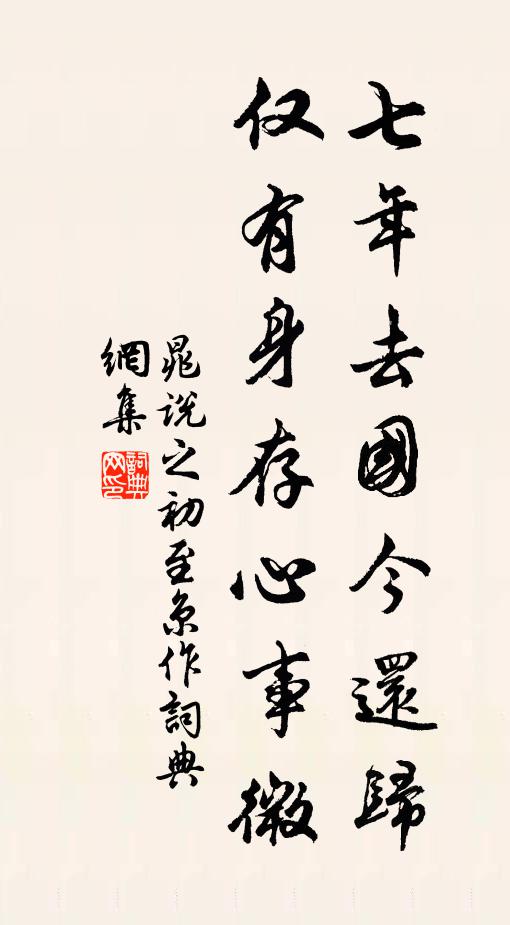 七年去國今還歸
仅有身存心事微
晁說之初至京作詞典
網集
詞典網印